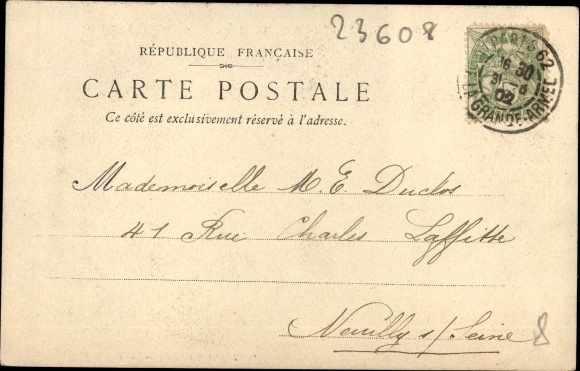 23608
RÉPUBLIQUE FRANÇAISE
CARTE POSTALE
Ce côté est exclusivement réservé à l'adresse.
PARIS 62
16 30
02
GRANDE-ARMÉE
Mademoiselle M. E Duclos
41 Rue Charles Laffitte
Neuilly s/ Seine
8